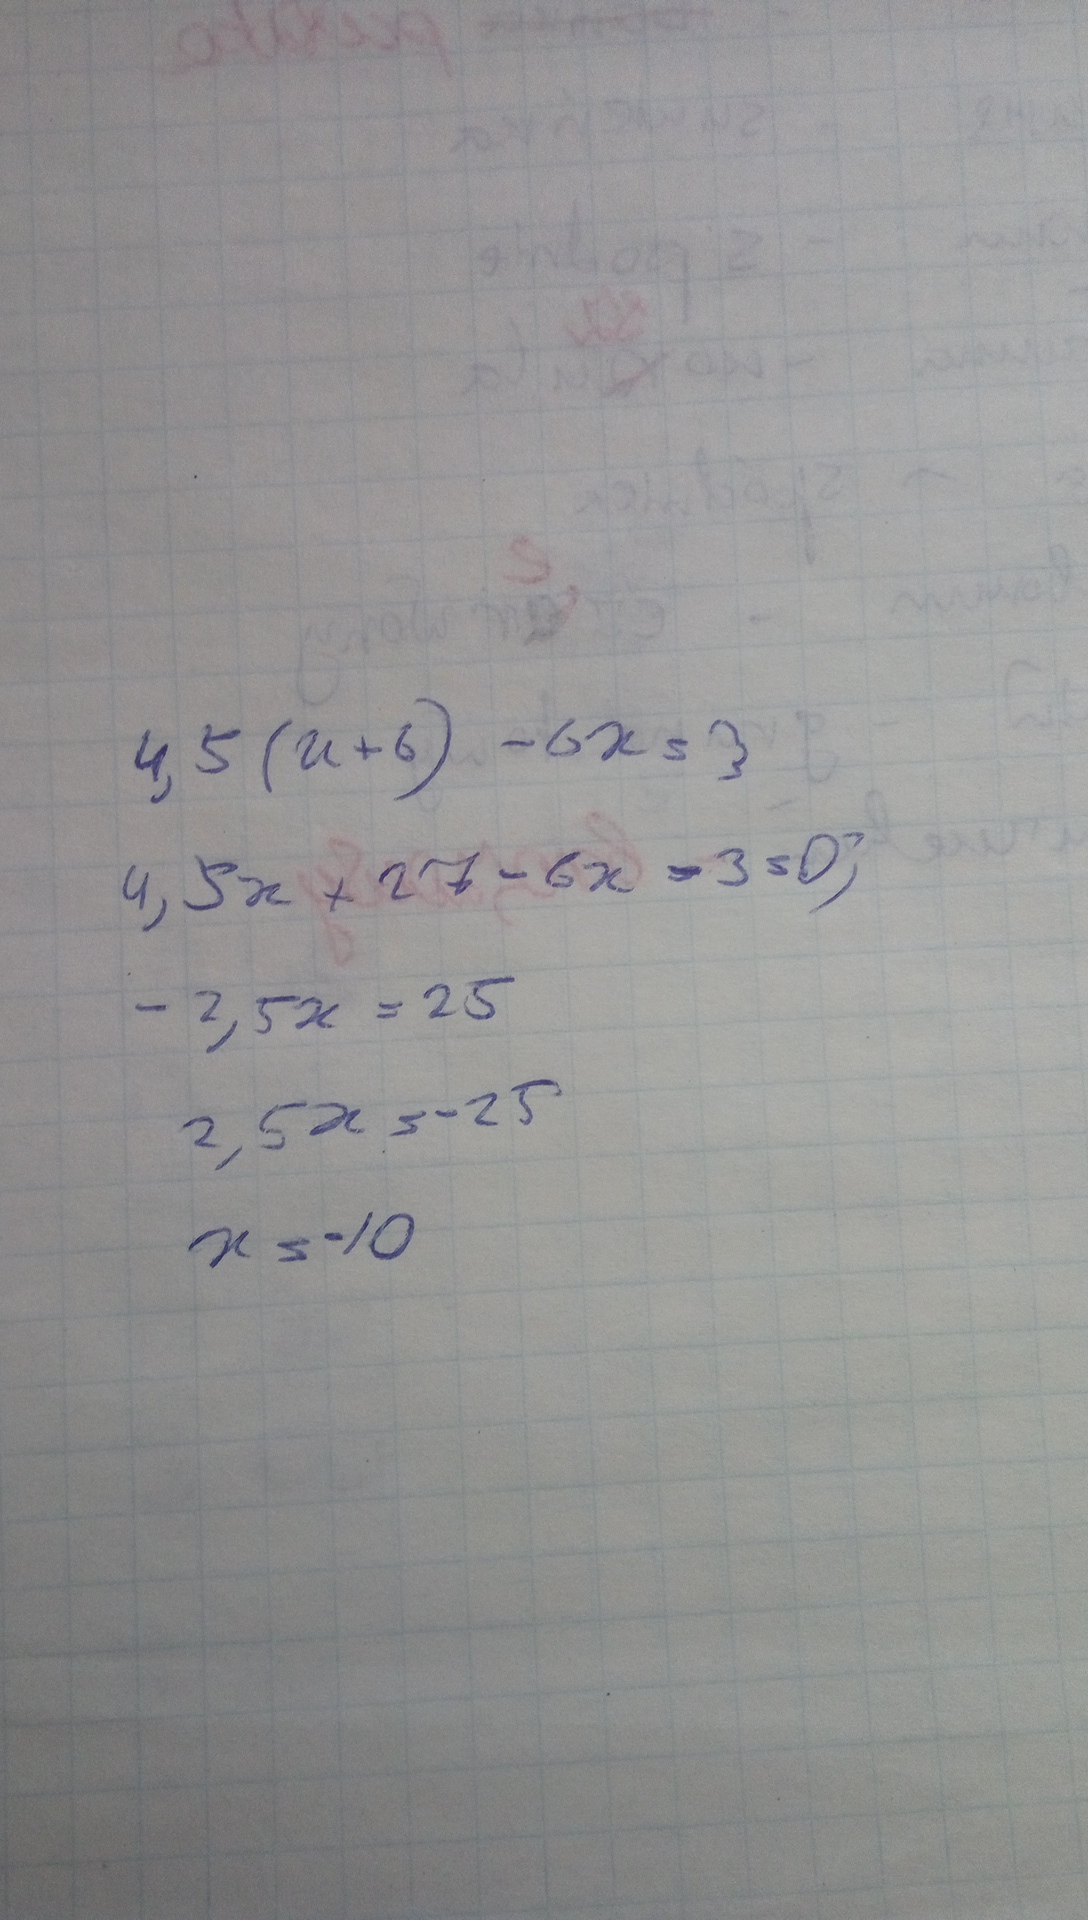 4,5(x+6) -6x=3
4,5x+27-6x-3=0;
-2,5x=25
2,5x=-25
x=-10